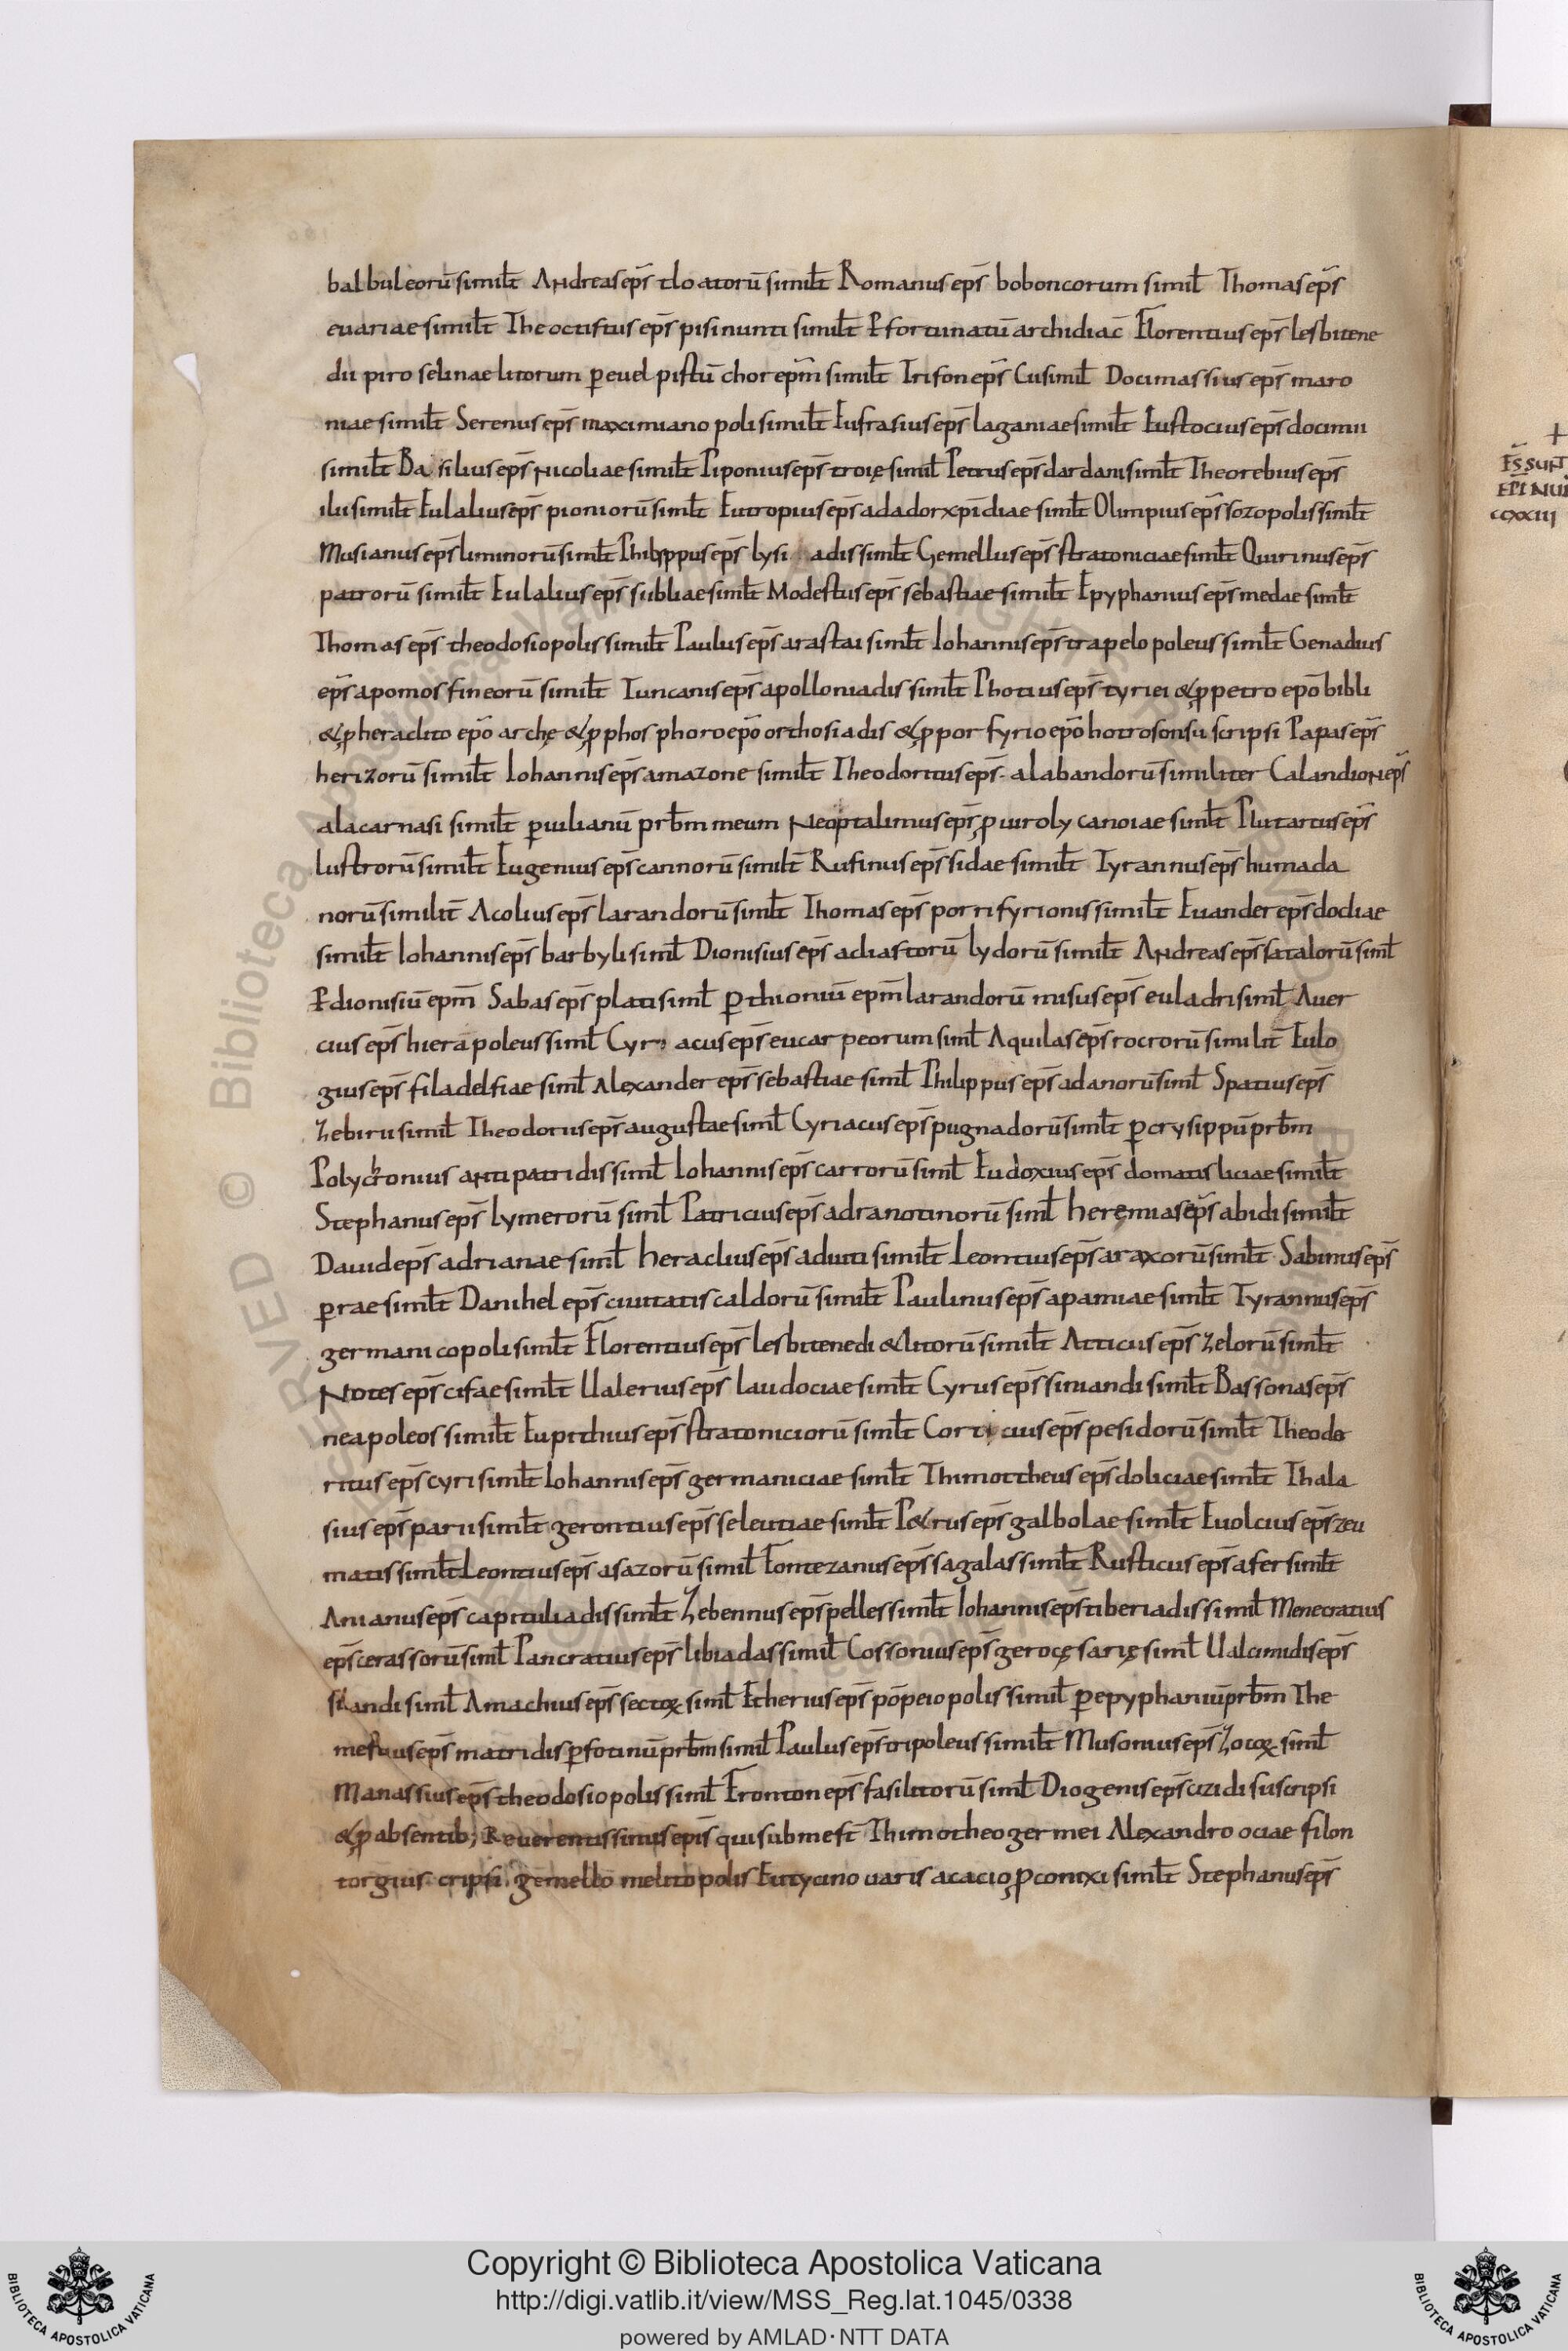 balbuleorū similt̄ Andreas ep̄s tloatorū similt̄ Romanus ep̄s boboncorum simil̄ Thomas ep̄s
euariae similt̄ Theoctiftus ep̄s pisinunti similt̄ P̱ fortunatū archidiac̄ Florentius ep̄s lesbitene
dii piro selinae litorum p̱ euelpistū chorep̄m similt̄ Trifon ep̄s Cusimil̄ Docimassius ep̄s maro
niae similt̄ Serenus ep̄s maximianopoli similt̄ Eufrasius ep̄s laganiae similt̄ Eustocius ep̄s docimii
similt̄ Basilius ep̄s Nicoliae similt̄ Piponius ep̄s troię simil̄ Petrus ep̄s dardani similt̄ Theorebius ep̄s
ilii similt̄ Eulalius ep̄s pioniorū similt̄ Eutropius ep̄s adadorxpidiae similt̄ Olimpius ep̄s sozopolis similt̄
Musianus ep̄s liminorū similt̄ Philippus ep̄s lysi adis similt̄ Gemellus ep̄s stratoniciae similt̄ Quirinus ep̄s
patrorū similt̄ Eulalius ep̄s subliae similt̄ Modestus ep̄s sebastiae similt̄ Epyphanius ep̄s medae similt̄
Thomas ep̄s theodosiopolis similt̄ Paulus ep̄s arastai similt̄ Iohannis ep̄s trapelopoleus similt̄ Genadius
ep̄s apomosfineorū similt̄ Tuncanis ep̄s apolloniadis similt̄ Photius ep̄s tyriei & ꝓ petro ep̄o bibli
& ꝓ heraclito ep̄o archę & ꝓ phosphoro ep̄o orthosiadis & ꝓ porfyrio ep̄o hotrosonsū scripsi Papas ep̄s
herizorū similt̄ Iohannis ep̄s amazone similt̄ Theodoritus ep̄s alabandorū similiter Calandion ep̄s
alacarnasi similt̄ p̱ iulianū prb̄m meum Neoptalimus ep̄s ꝓ iuroly canoiae similt̄ Plutartus ep̄s
lustrorū similt̄ Eugenius ep̄s cannorū similt̄ Rufinus ep̄s sidae similt̄ Tyrannus ep̄s humada
norū similit̄ Acolius ep̄s larandorū similt̄ Thomas ep̄s porrifyrionis similt̄ Euander ep̄s docliae
similt̄ Iohannis ep̄s barbyli simil̄ Dionisius ep̄s acliastorū lydorū similt̄ Andreas ep̄s satalorū simil̄
P̱ dionisiū ep̄m Sabas ep̄s plati simil̄ p̱ thioniū ep̄m larandorū misus ep̄s euladri simil̄ Auer
cius ep̄s hierapoleus simil̄ Cyriacus ep̄s eucarpeorum simil̄ Aquilas ep̄s rocrorū similit̄ Eulo
gius ep̄s filadelfiae simil̄ Alexander ep̄s sebastiae simil̄ Philippus ep̄s adanorū simil̄ Spatius ep̄s
Zebiru simil̄ Theodorus ep̄s augustae simil̄ Cyriacus ep̄s pugnadorū similt̄ p̱ crysippū prb̄m
Polychronius antipatridis simil̄ Iohannis ep̄s carrorū simil̄ Eudoxius ep̄s domatis liciae similt̄
Stephanus ep̄s lymerorū simil̄ Patricius ep̄s adranotinorū simil̄ heremias ep̄s abidi similt̄
Dauid ep̄s adrianae simil̄ heraclius ep̄s aduti similt̄ Leontius ep̄s araxorū similt̄ Sabinus ep̄s
p̱rae similt̄ Danihel ep̄s ciuitatis caldorū similt̄ Paulinus ep̄s apamiae similt̄ Tyrannus ep̄s
germanicopoli similt̄ Florentius ep̄s lesbitenedi & litorū similt̄ Atticus ep̄s Zelorū similt̄
Notes ep̄s cifae similt̄ Ualerius ep̄s laudociae similt̄ Cyrus ep̄s siniandi similt̄ Bassonas ep̄s
neapoleos similt̄ Eupithius ep̄s stratoniciorū similt̄ Corticius ep̄s pesidorū similt̄ Theodo
ritus ep̄s cyri similt̄ Iohannis ep̄s germaniciae similt̄ Thimottheus ep̄s doliciae similt̄ Thala
sius ep̄s parii similt̄ gerontius ep̄s seleutiae similt̄ P&rus ep̄s galbolae similt̄ Euolcius ep̄s zeu
matis similt̄ Leontius ep̄s asazorū simil̄ Fontezanus ep̄s sagalas similt̄ Rusticus ep̄s afer similt̄
Anianus ep̄s capituliadis similt̄ Zebennus ep̄s pelles similt̄ Iohannis ep̄s tiberiadis simil̄ Menecratius
ep̄s cerassorū simil̄ Pancratius ep̄s libiadas simil̄ Cossonius ep̄s gerocęsarię simil̄ Ualcimidis ep̄s
silandi simil̄ Amachius ep̄s sectoꝝ simil̄ Etherius ep̄s pōpeiopolis simil̄ p̱ epyphaniū prb̄m The
ep̄s matridis p̱ fotinū prb̄m simil̄ Paulus ep̄s tripoleus similt̄ Musonius ep̄s Zotoꝝ simil̄
Manassius ep̄s theodosiopolis simil̄ Fronton ep̄s fasilitorū simil̄ Diogenis ep̄s cizidi suscripsi
& ꝓ absentib; Reuerentissimis epis̄ qui sub me st̄ Thimotheo germei Alexandro ociae filon
torgius cripsi gemello melitopolis Eutycino uaris acacio ꝓconixi similt̄ Stephanus ep̄s
+
CCXXIII
Copyright © Biblioteca Apostolica Vaticana
http://digi.vatlib.it/view/MSS_Reg.lat.1045/0338
powered by AMLAD·NTT DATA
BIBLIOTECA APOSTOLICA VATICANA
BIBLIOTECA APOSTOLICA VATICANA